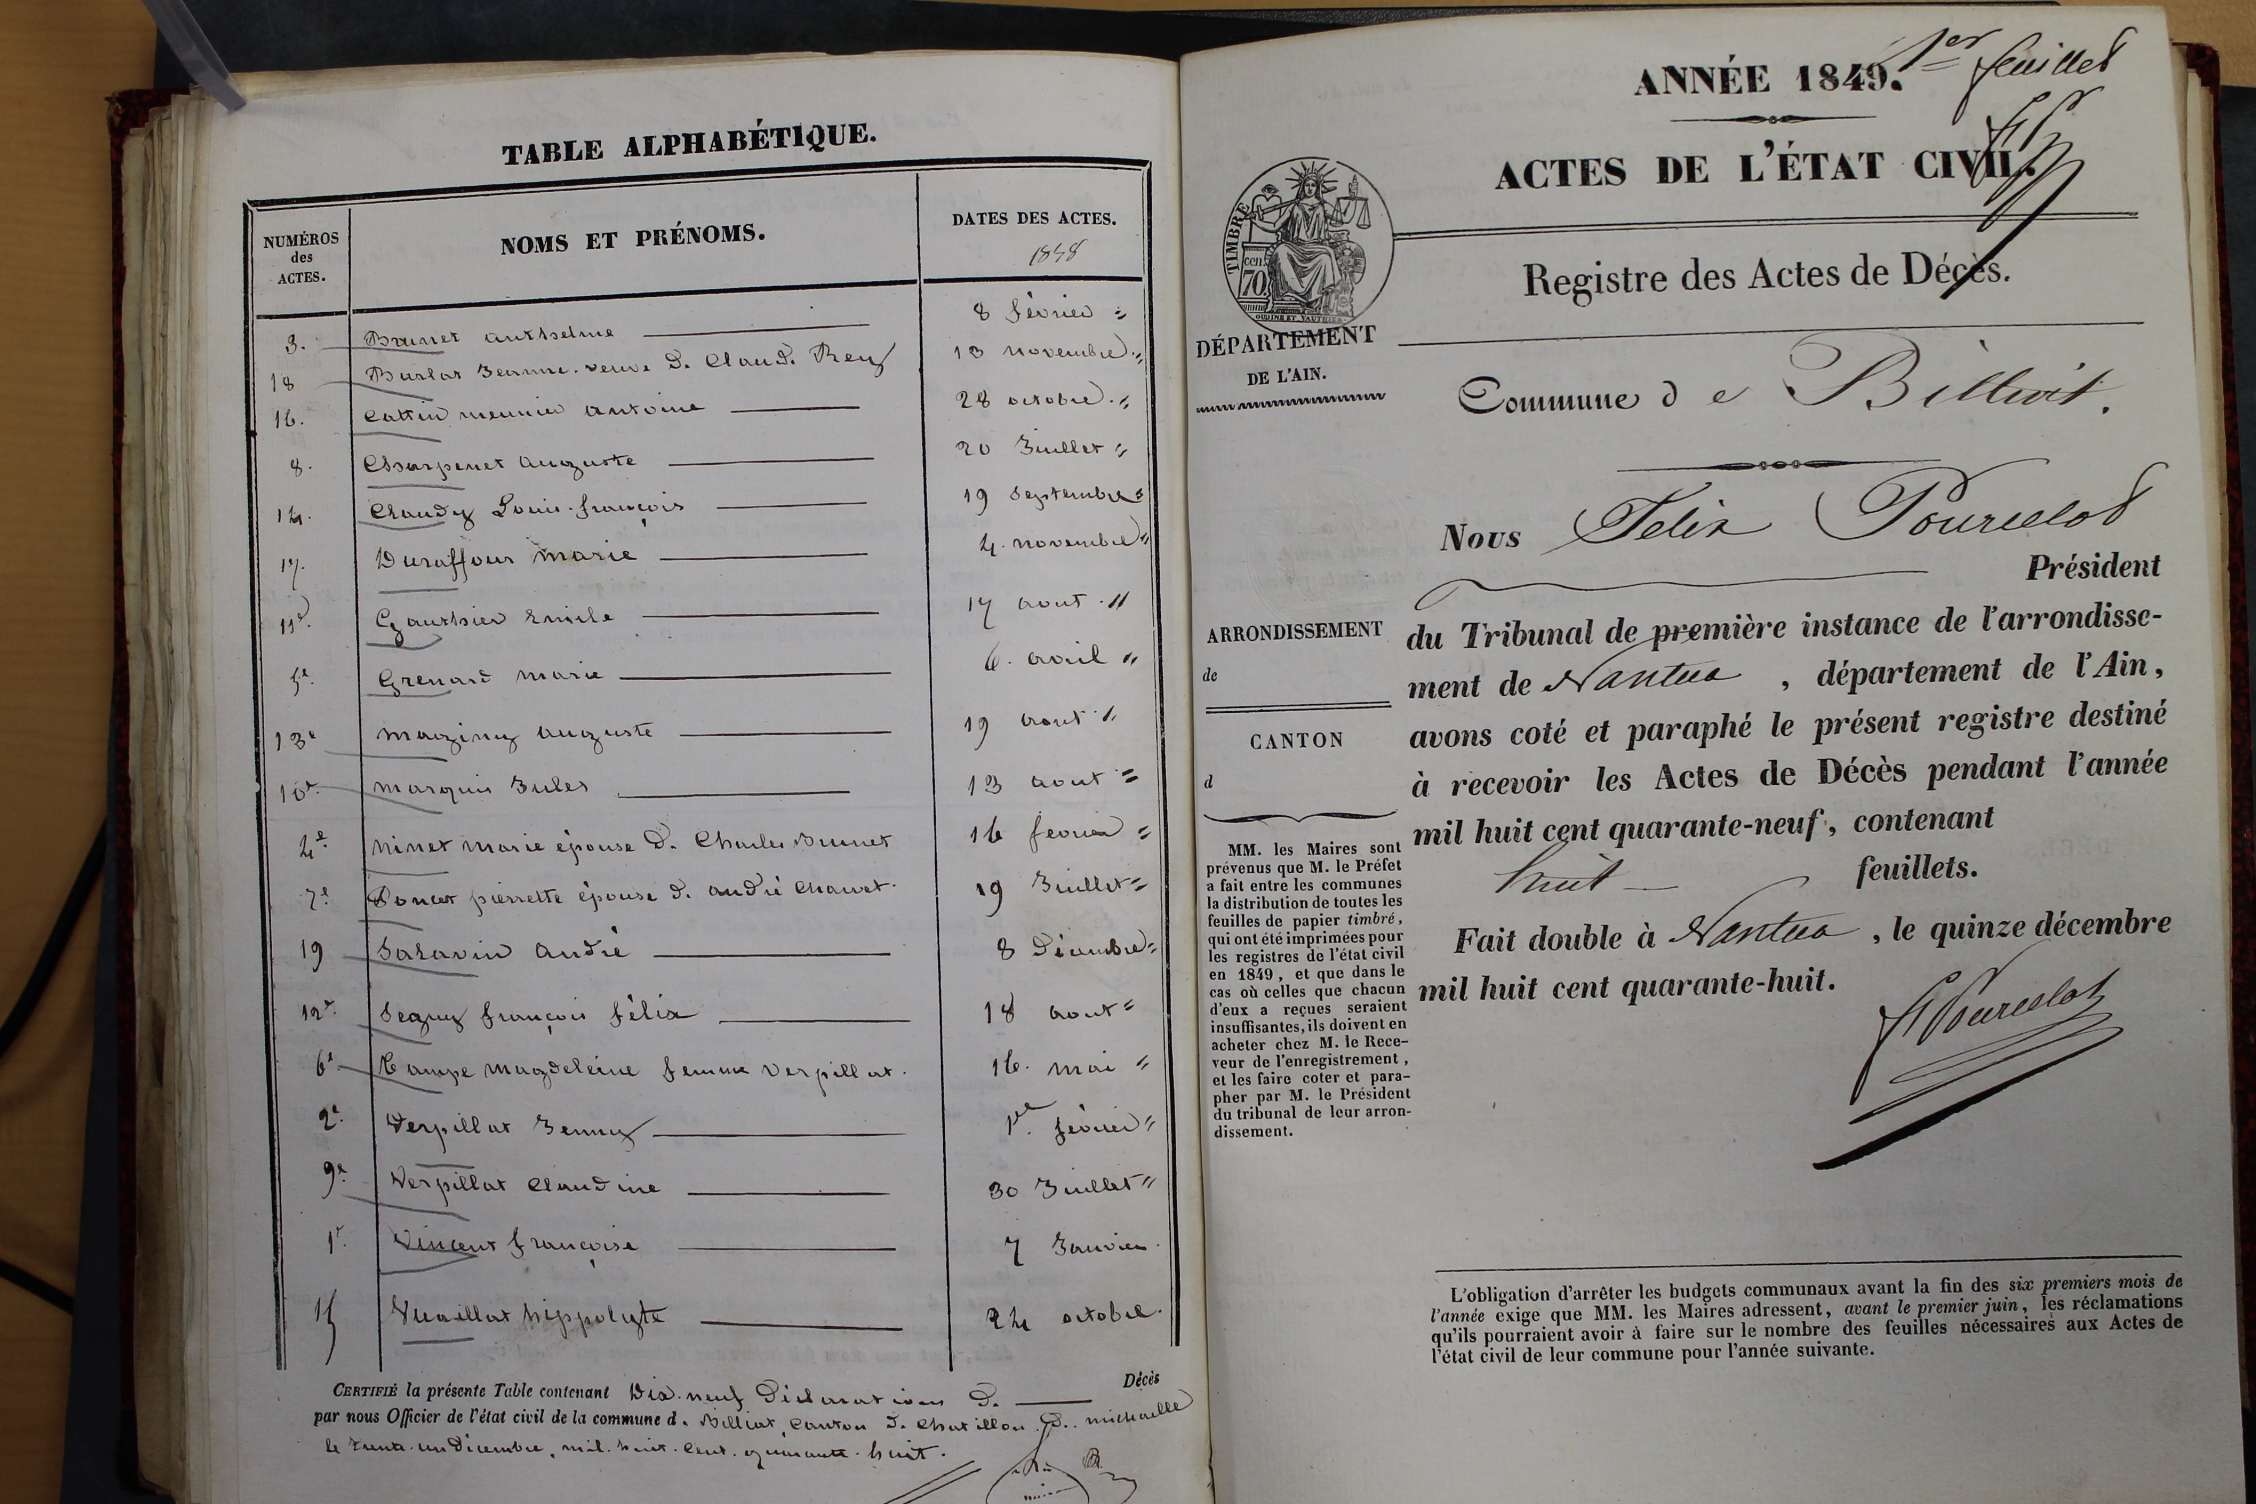 TABLE ALPHABÉTIQUE.
NUMÉROS des ACTES.
NOMS ET PRÉNOMS.
DATES DES ACTES.
1848
3. Brunet anthelme 8 février "
18 Burlat Jeanne veuve de Claude Rey 13 novembre "
16. Cattin meunier antoine 28 octobre "
8. Charpenet auguste 20 Juillet "
14. Chaudy Louis françois 19 septembre "
17. Duraffour marie 4 novembre "
11e. Gauthier Emile 17 aout "
5e. Grenard marie 6 avril "
13e maziny auguste 19 aout "
10e. marquis Jules 13 aout "
4e. ninet marie épouse de Charles Brunet 16 février "
7e. Poncet pierrette épouse de andré Chauvet 19 Juillet "
19 Salavin andré 8 Décembre "
12e. Seguy françois félix 18 aout "
6e Tampe magdeleine femme Verpillat 16 mai "
2e. Verpillat Jenny 1er février "
9e. Verpillat Claudine 30 Juillet "
1er. Vincent françoise 7 Janvier
15 Vuaillat hippolyte 24 octobre
Décès
CERTIFIÉ la présente Table contenant Dix-neuf Déclarations de
par nous Officier de l'état civil de la commune de Billiat, Canton de Chatillon de michaille
le trente un Décembre, mil huit cent quarante huit.
1er feuillet
ANNÉE 1849.
ACTES DE L'ÉTAT CIVIL.
TIMBRE
70 cen.
Registre des Actes de Décès.
DÉPARTEMENT
DE L'AIN.
Commune de Billiat.
Nous Félix Pourcelot
Président
du Tribunal de première instance de l'arrondisse-
ment de Nantua, département de l'Ain,
avons coté et paraphé le présent registre destiné
à recevoir les Actes de Décès pendant l'année
mil huit cent quarante-neuf, contenant
huit feuillets.
Fait double à Nantua, le quinze décembre
mil huit cent quarante-huit.
F Pourcelot
ARRONDISSEMENT
de
CANTON
d
MM. les Maires sont
prévenus que M. le Préfet
a fait entre les communes
la distribution de toutes les
feuilles de papier timbré,
qui ont été imprimées pour
les registres de l'état civil
en 1849, et que dans le
cas où celles que chacun
d'eux a reçues seraient
insuffisantes, ils doivent en
acheter chez M. le Rece-
veur de l'enregistrement,
et les faire coter et para-
pher par M. le Président
du tribunal de leur arron-
dissement.
L'obligation d'arrêter les budgets communaux avant la fin des six premiers mois de
l'année exige que MM. les Maires adressent, avant le premier juin, les réclamations
qu'ils pourraient avoir à faire sur le nombre des feuilles nécessaires aux Actes de
l'état civil de leur commune pour l'année suivante.